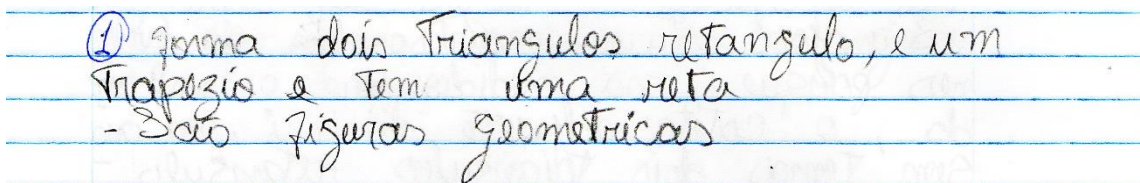 ① forma dois Triangulos retangulo, e um
Trapezio e Tem uma reta
- São figuras geometricas